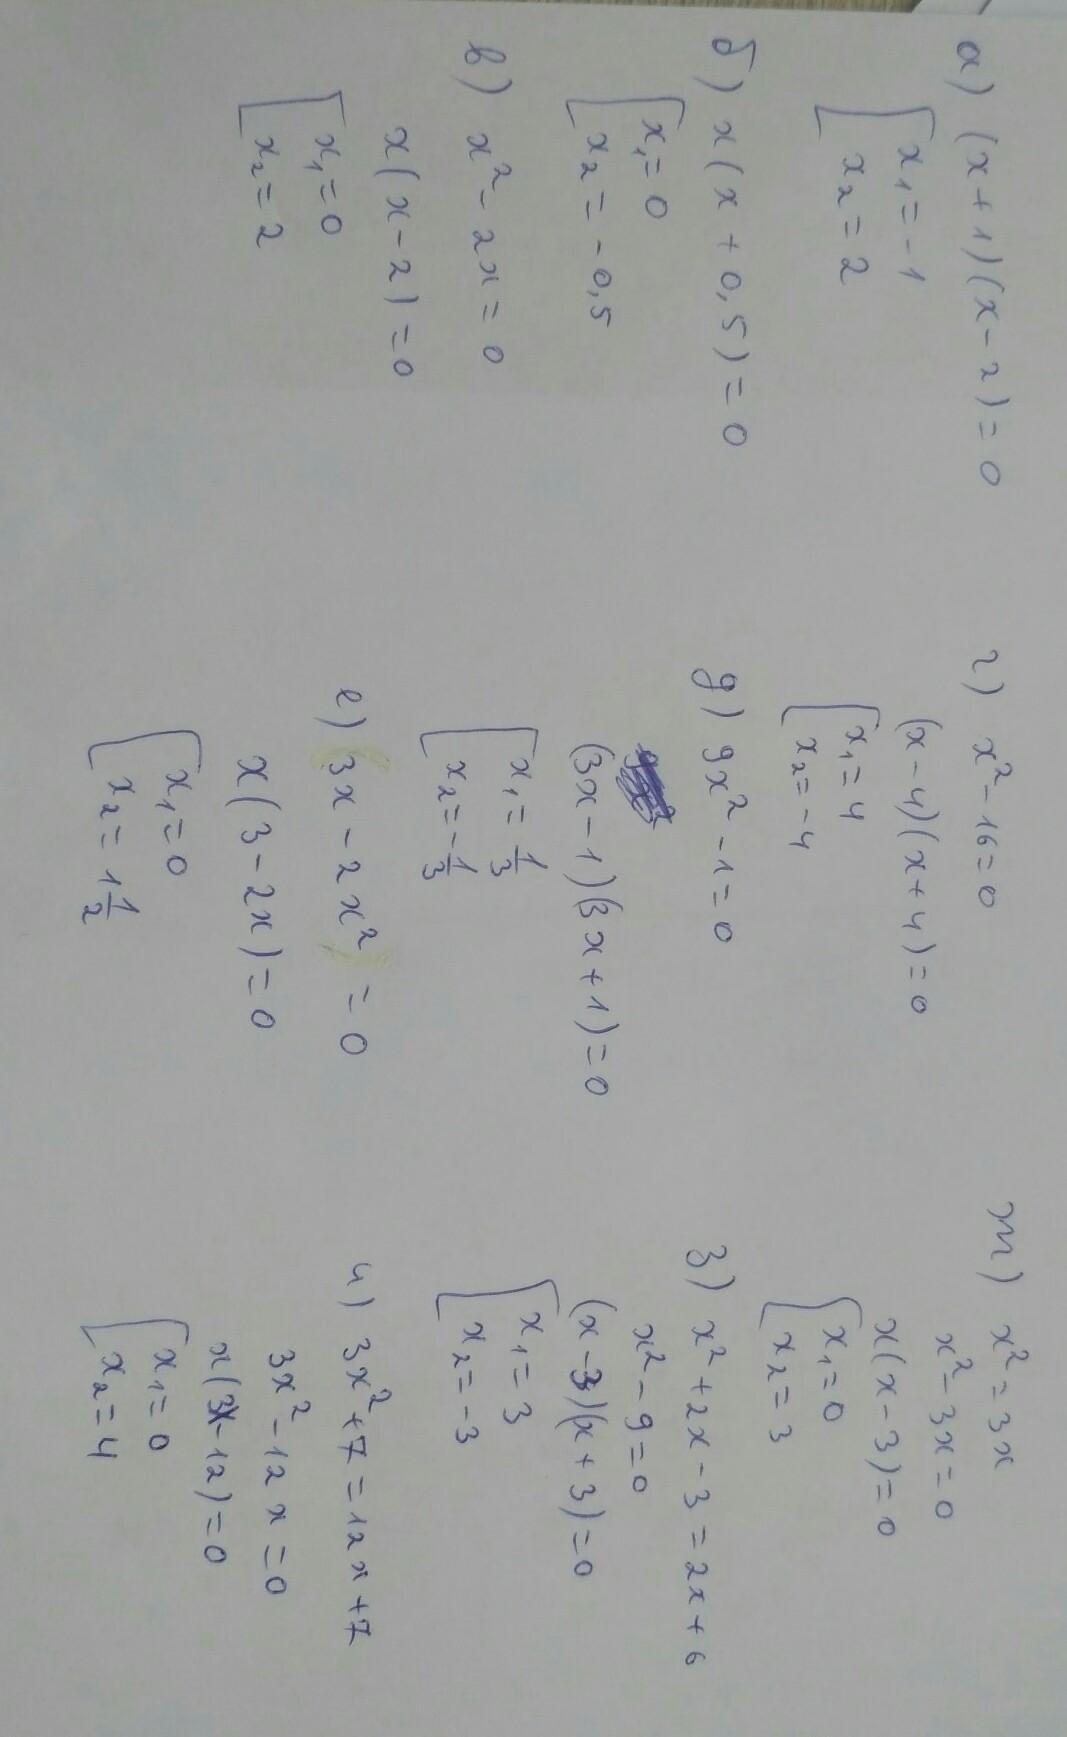 а) (x+1)(x-2)=0
[x₁=-1
x₂=2
б) x(x+0,5)=0
[x₁=0
x₂=-0,5
в) x²-2x=0
x(x-2)=0
[x₁=0
x₂=2
г) x²-16=0
(x-4)(x+4)=0
[x₁=4
x₂=-4
д) 9x²-1=0
(3x-1)(3x+1)=0
[x₁=1/3
x₂=-1/3
е) 3x-2x²=0
x(3-2x)=0
[x₁=0
x₂=1 1/2
ж) x²=3x
x²-3x=0
x(x-3)=0
[x₁=0
x₂=3
з) x²+2x-3=2x+6
x²-9=0
(x-3)(x+3)=0
[x₁=3
x₂=-3
и) 3x²+7=12x+7
3x²-12x=0
x(3x-12)=0
[x₁=0
x₂=4